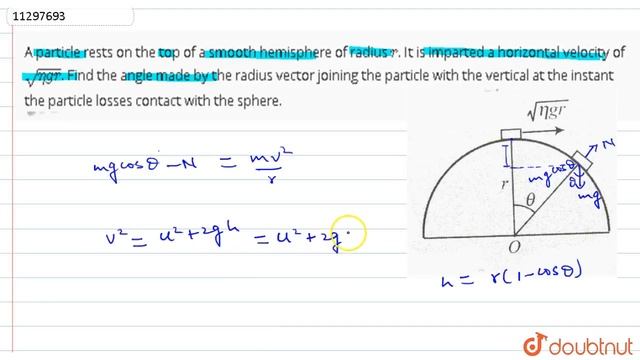 11297693
A particle rests on the top of a smooth hemisphere of radius r. It is imparted a horizontal velocity of
√ηgr. Find the angle made by the radius vector joining the particle with the vertical at the instant
the particle losses contact with the sphere.
√ηgr
mg cosθ - N = mv²/r
N
mg cosθ
θ
mg
r
θ
v² = u² + 2gh = u² + 2g
O
h = r(1 - cosθ)
doubtnut